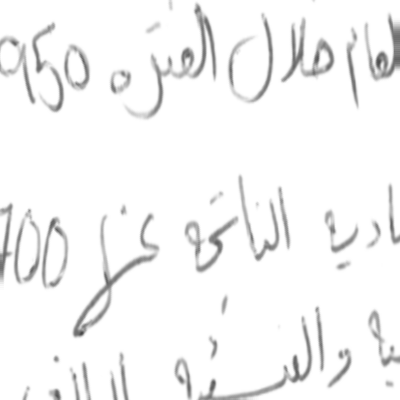 لعام خلال الفترة 950
ادية الناتجة عن 700
ية والفنية